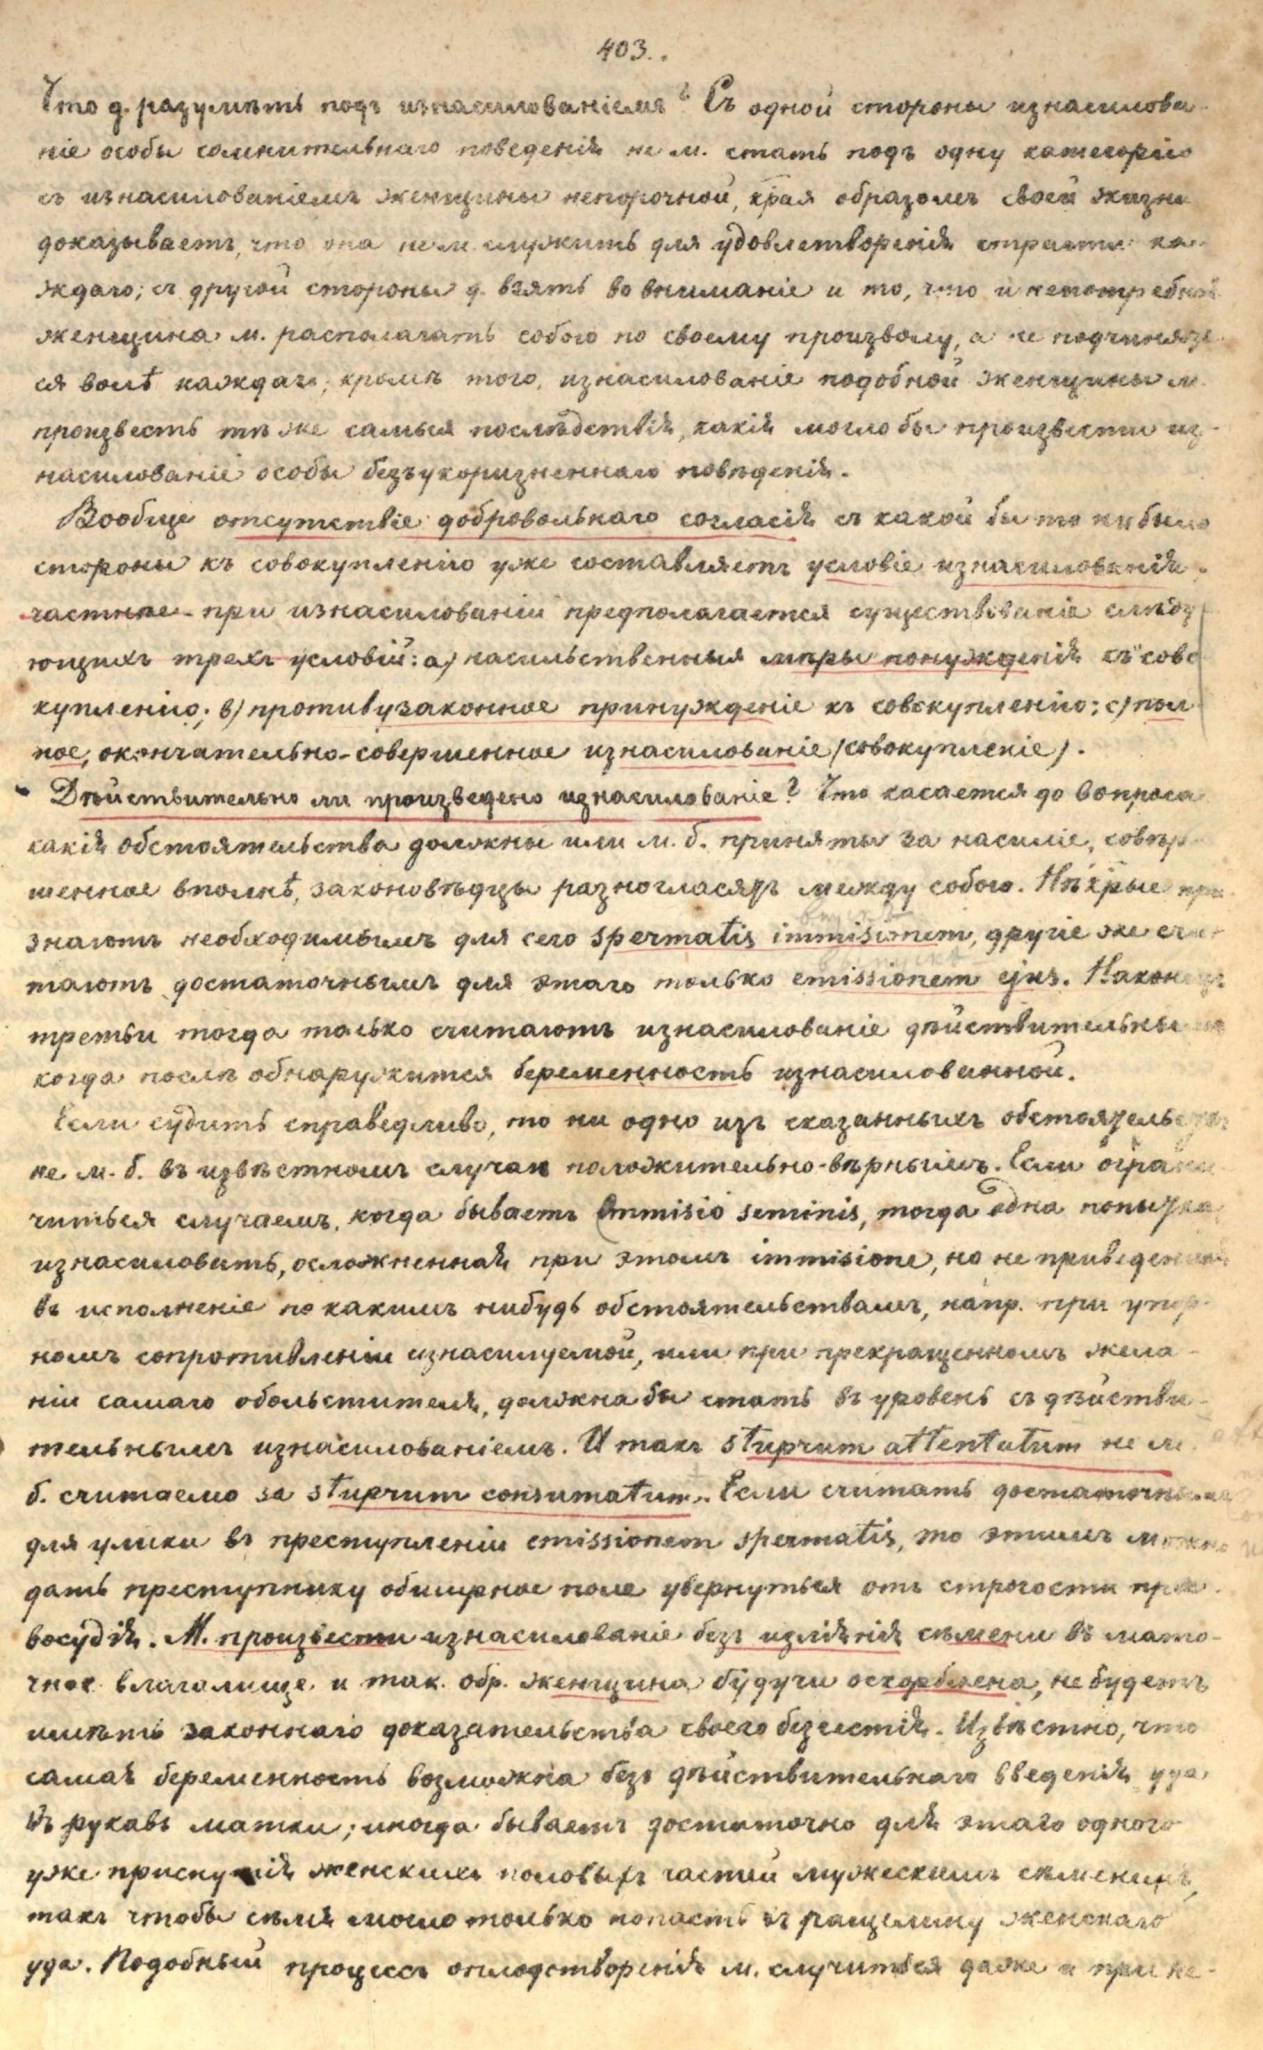 403.
Что д. разумѣть подъ изнасилованіемъ? Съ одной стороны изнасилова-
ніе особы сомнительнаго поведенія не м. стать подъ одну категорію
съ изнасилованіемъ женщины непорочной, края образомъ своей жизни
доказываетъ, что она не м. служить для удовлетворенія страсти ка-
ждаго; съ другой стороны д. взять во вниманіе и то, что и непотребная
женщина м. располагать собою по своему произволу, а не подчинять-
ся волѣ каждаго; кромѣ того, изнасилованіе подобной женщины м.
произвесть тѣ же самыя послѣдствія, какія могло бы произвести из-
насилованіе особы безъукоризненнаго поведенія.
Вообще отсутствіе добровольнаго согласія съ какой бы то ни было
стороны къ совокупленію уже составляетъ условіе изнасилованія.
частное - при изнасилованіи предполагается существованіе слѣду
ющихъ трехъ условій: а) насильственныя мѣры понужденія къ сово
купленію; в) противузаконное принужденіе къ совокупленію; с) пол-
ное, окончательно-совершенное изнасилованіе (совокупленіе).
Дѣйствительно ли произведено изнасилованіе? Что касается до вопроса
какія обстоятельства должны или м. б. приняты за насиліе, совер-
шенное вполнѣ, законовѣдцы разногласятъ между собою. Нѣкрые при
знаютъ необходимымъ для сего spermatis immisionem, другіе же счи-
таютъ достаточнымъ для этаго только emissionem ejus. Наконецъ
третьи тогда только считаютъ изнасилованіе дѣйствительнымъ
когда послѣ обнаружится беременность изнасилованной.
Если судить справедливо, то ни одно изъ сказанныхъ обстоятельствъ
не м. б. въ извѣстномъ случаѣ положительно-вѣрнымъ. Если ограни-
читься случаемъ, когда бываетъ immisio seminis, тогда одна попытка
изнасиловать, осложненная при этомъ immisione, но не приведенная
въ исполненіе по какимъ нибудь обстоятельствамъ, напр. при упор-
номъ сопротивленіи изнасилуемой, или при прекращенномъ жела-
ніи самаго обольстителя, должна бы стать въ уровень съ дѣйстви-
тельнымъ изнасилованіемъ. И такъ stuprum attentatum не м.
б. считаемо за stuprum consumatum. Если считать достаточнымъ
для улики въ преступленіи emissionem spermatis, то этимъ можно
дать преступнику обширное поле увернуться отъ строгости пра-
восудія. М. произвести изнасилованіе безъ изліянія сѣмени въ мато-
чное влагалище и так. обр. женщина будучи оскорблена, не будетъ
имѣть законнаго доказательства своего безчестія. Извѣстно, что
самая беременность возможна безъ дѣйствительнаго введенія уда
въ рукавъ матки; иногда бываетъ достаточно для этаго одного
уже женскихъ половыхъ частей мужескимъ сѣменемъ,
такъ чтобы сѣмя могло только попасть въ расщелину женскаго
уда. Подобный процессъ оплодотворенія м. случиться даже и при не-